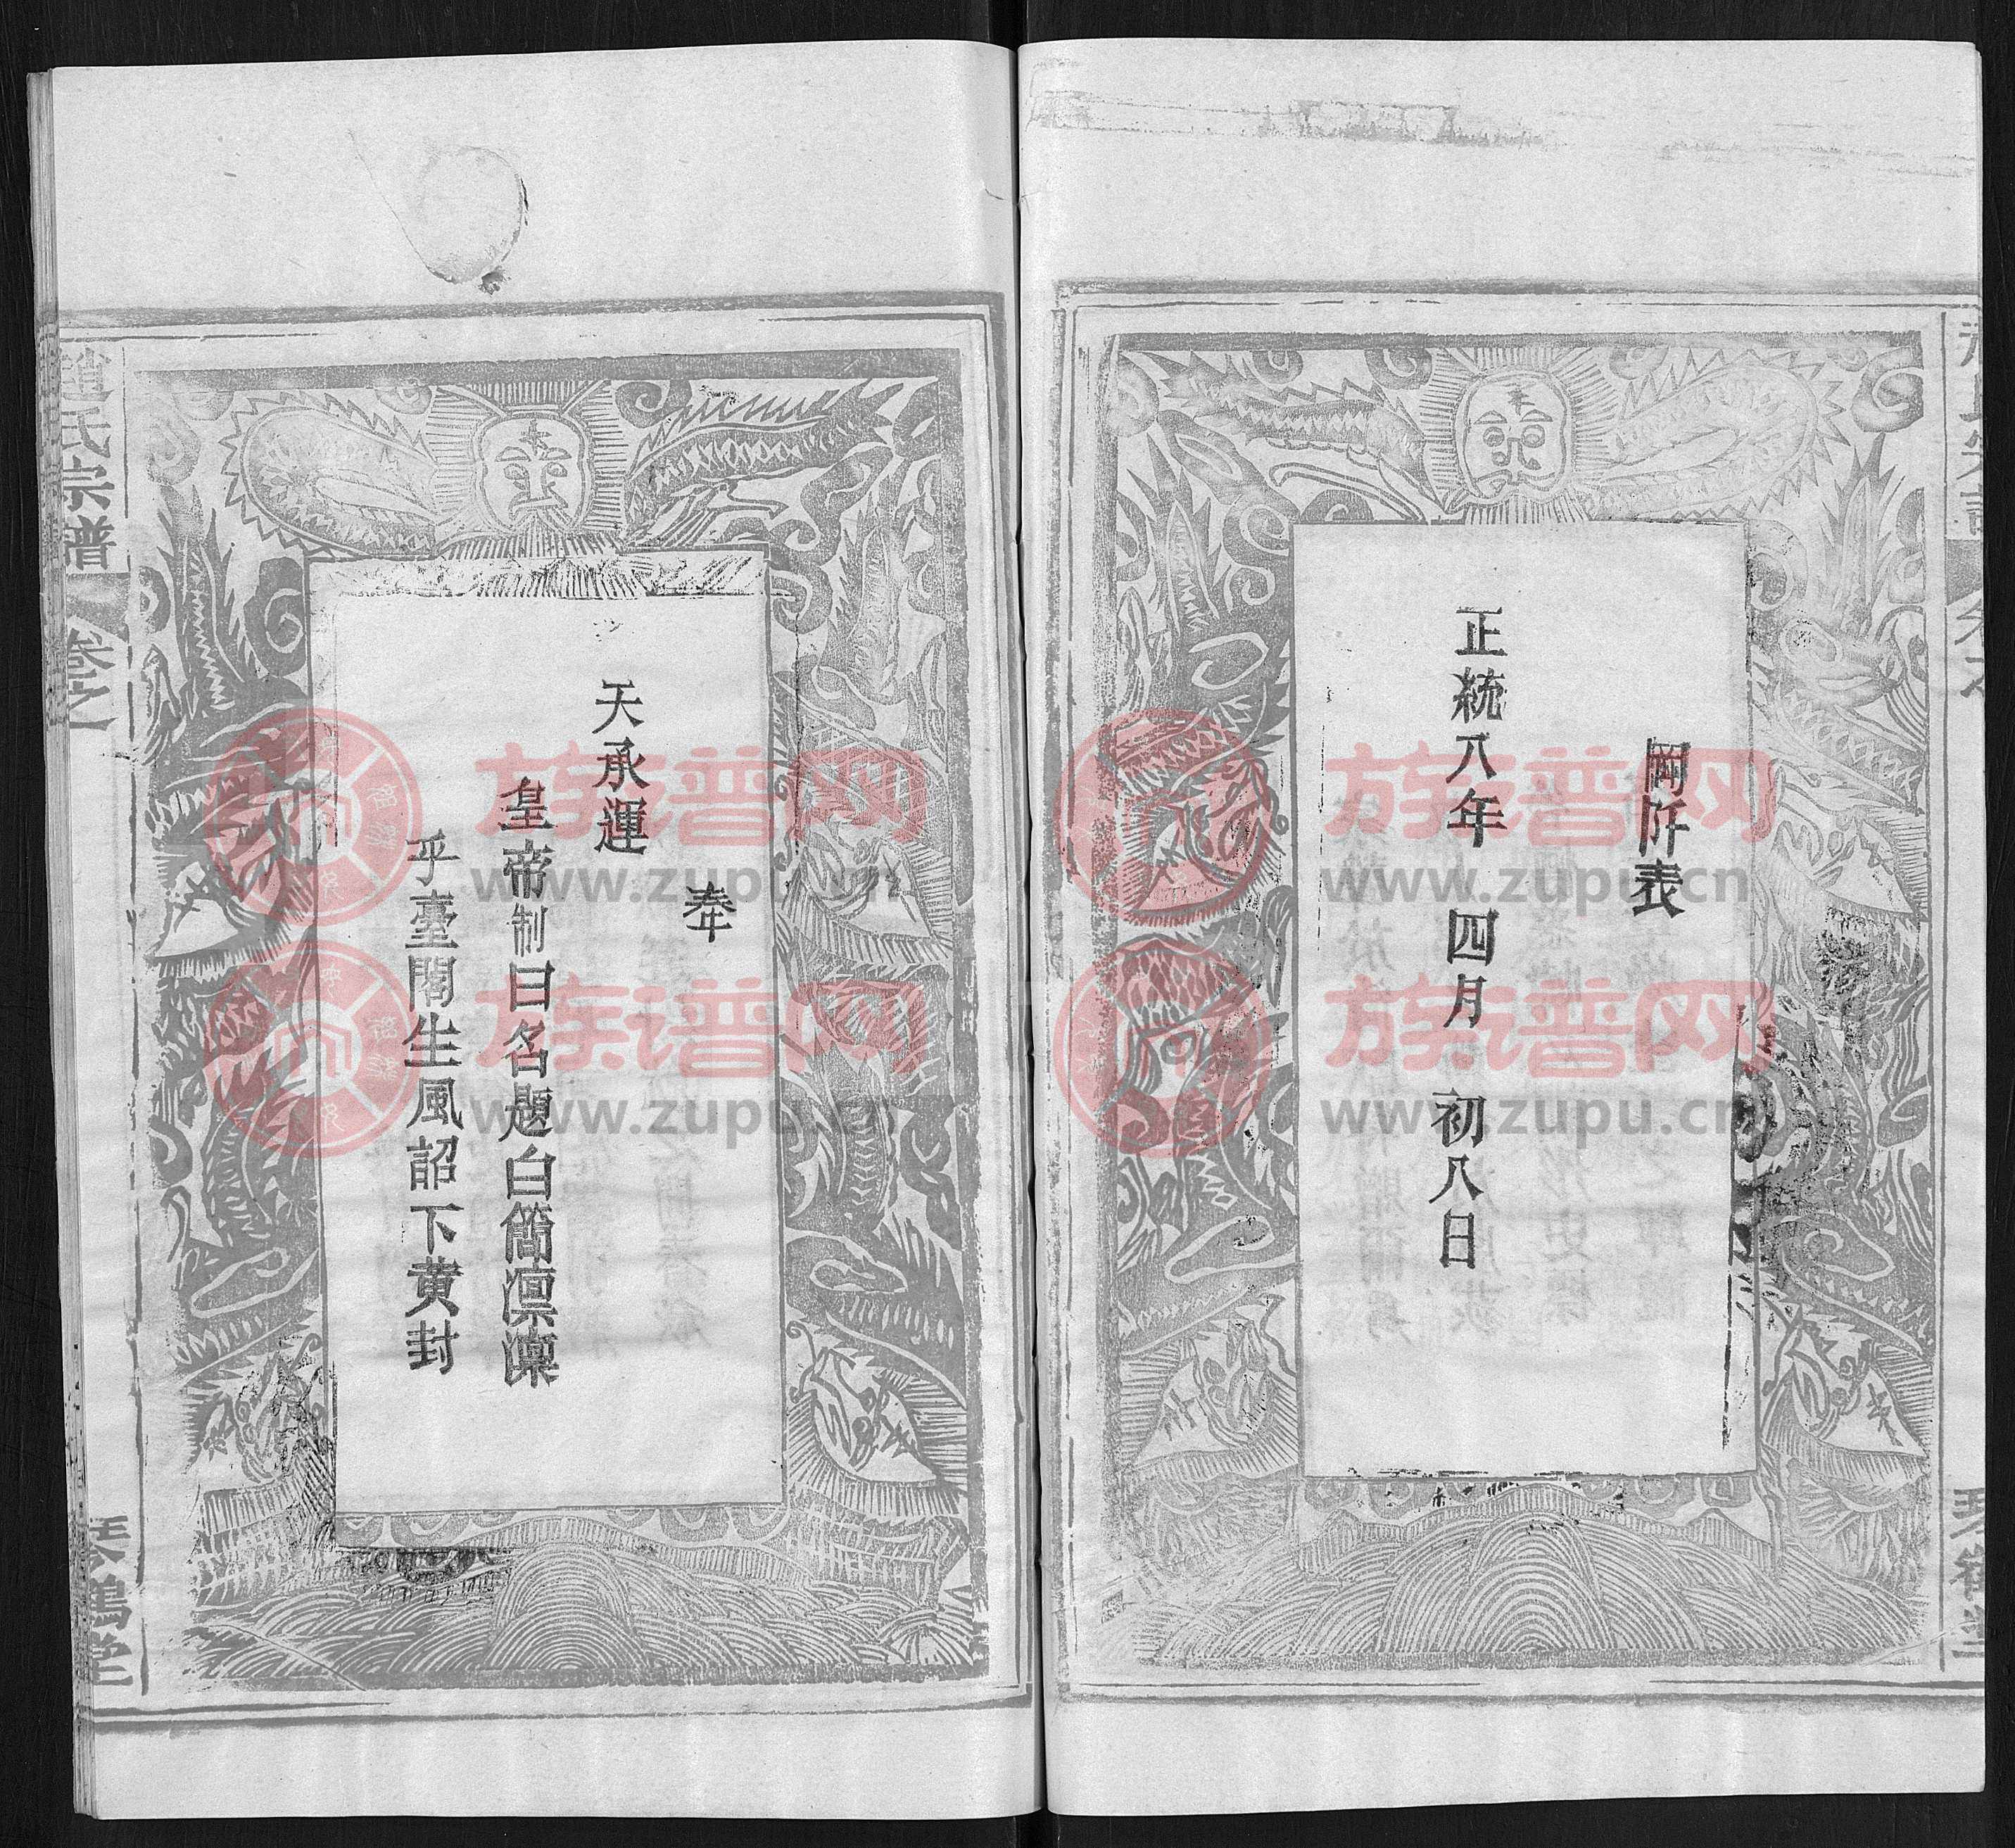 岡阡表
正統八年 四月 初八日
奉
天承運
皇帝制曰名題白簡凛凛
乎臺閣生風詔下黄封
趙氏宗譜
卷之一
天鶴堂
族谱网
www.zupu.cn
族谱网
www.zupu.cn
族谱网
www.zupu.cn
族谱网
www.zupu.cn